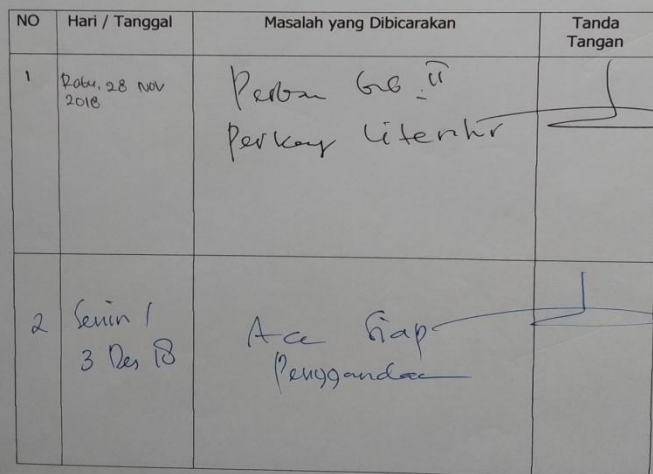 NO Hari / Tanggal Masalah yang Dibicarakan Tanda Tangan
1 Rabu, 28 NOV 2018
II
Perkay Literatur
2 Senin / 3 Des 18
Acc Siap
Penggandaan